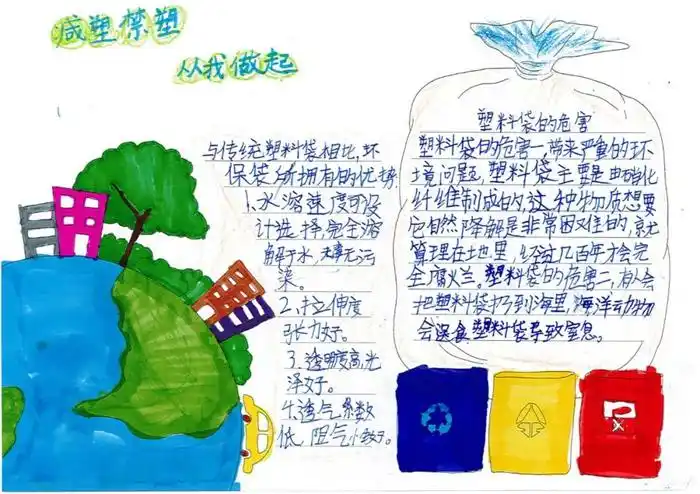 减塑禁塑
从我做起
与传统塑料袋相比,环
保袋所拥有的优势.
1.水溶速度可设
计选择,完全溶
解于水,无污
染。
2.拉伸度
张力好。
3.透明度高,光
泽好。
4.透气系数
低,阻气小较好。
塑料袋的危害
塑料袋的危害一,带来严重的环
境问题,塑料袋主要是由硝化
纤维制成的,这种物质想要
它自然降解是非常困难的,就
算埋在地里,经过几百年才会完
全腐烂。塑料袋的危害二,有人会
把塑料袋扔到海里,海洋动物
会误食塑料袋导致窒息。